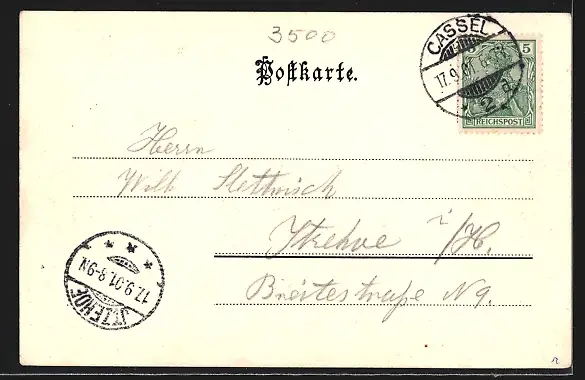 3500
Postkarte.
CASSEL
17.9.01
2
5
REICHSPOST
Herrn
Wilh Slettwisch
Itzehoe i/H.
Breitestraße N 9.
ITZEHOE
17.9.01.8-9N